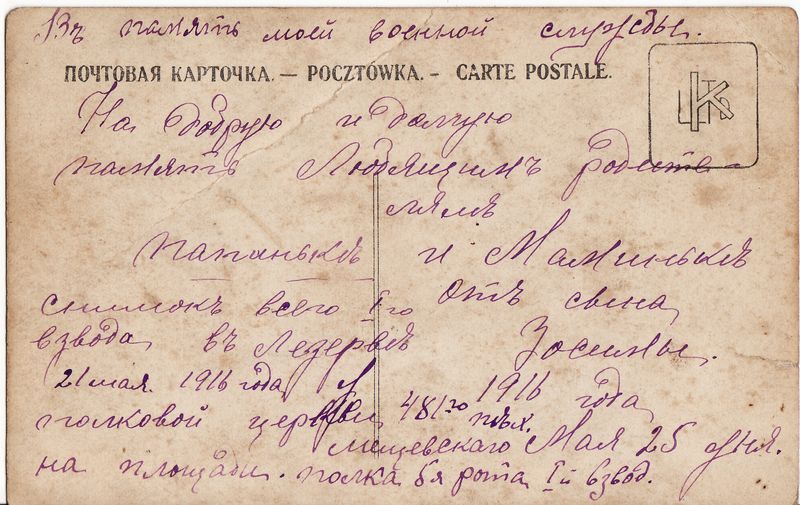 Въ память моей военной службы.
ПОЧТОВАЯ КАРТОЧКА. — POCZTÓWKA. - CARTE POSTALE.
На добрую и долгую
память Любящимъ Родите-
лямъ
папанькѣ и Маминькѣ
отъ сына
Зосимы.
1916 года
Мая 25 дня.
снимокъ всего I го
взвода въ Резервѣ
21 мая. 1916 года У
полковой церкви 481 го пѣх.
на площади. Мещевскаго
полка 5я рота I й взвод.